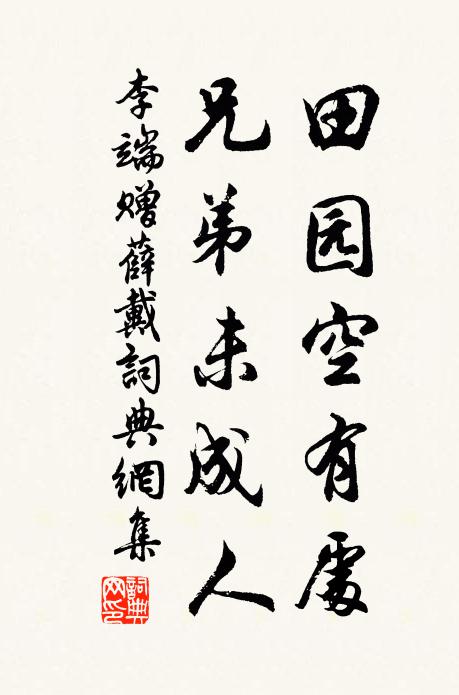 田园空有處
兄弟未成人
李端贈薛戴詞典網集
詞典網印